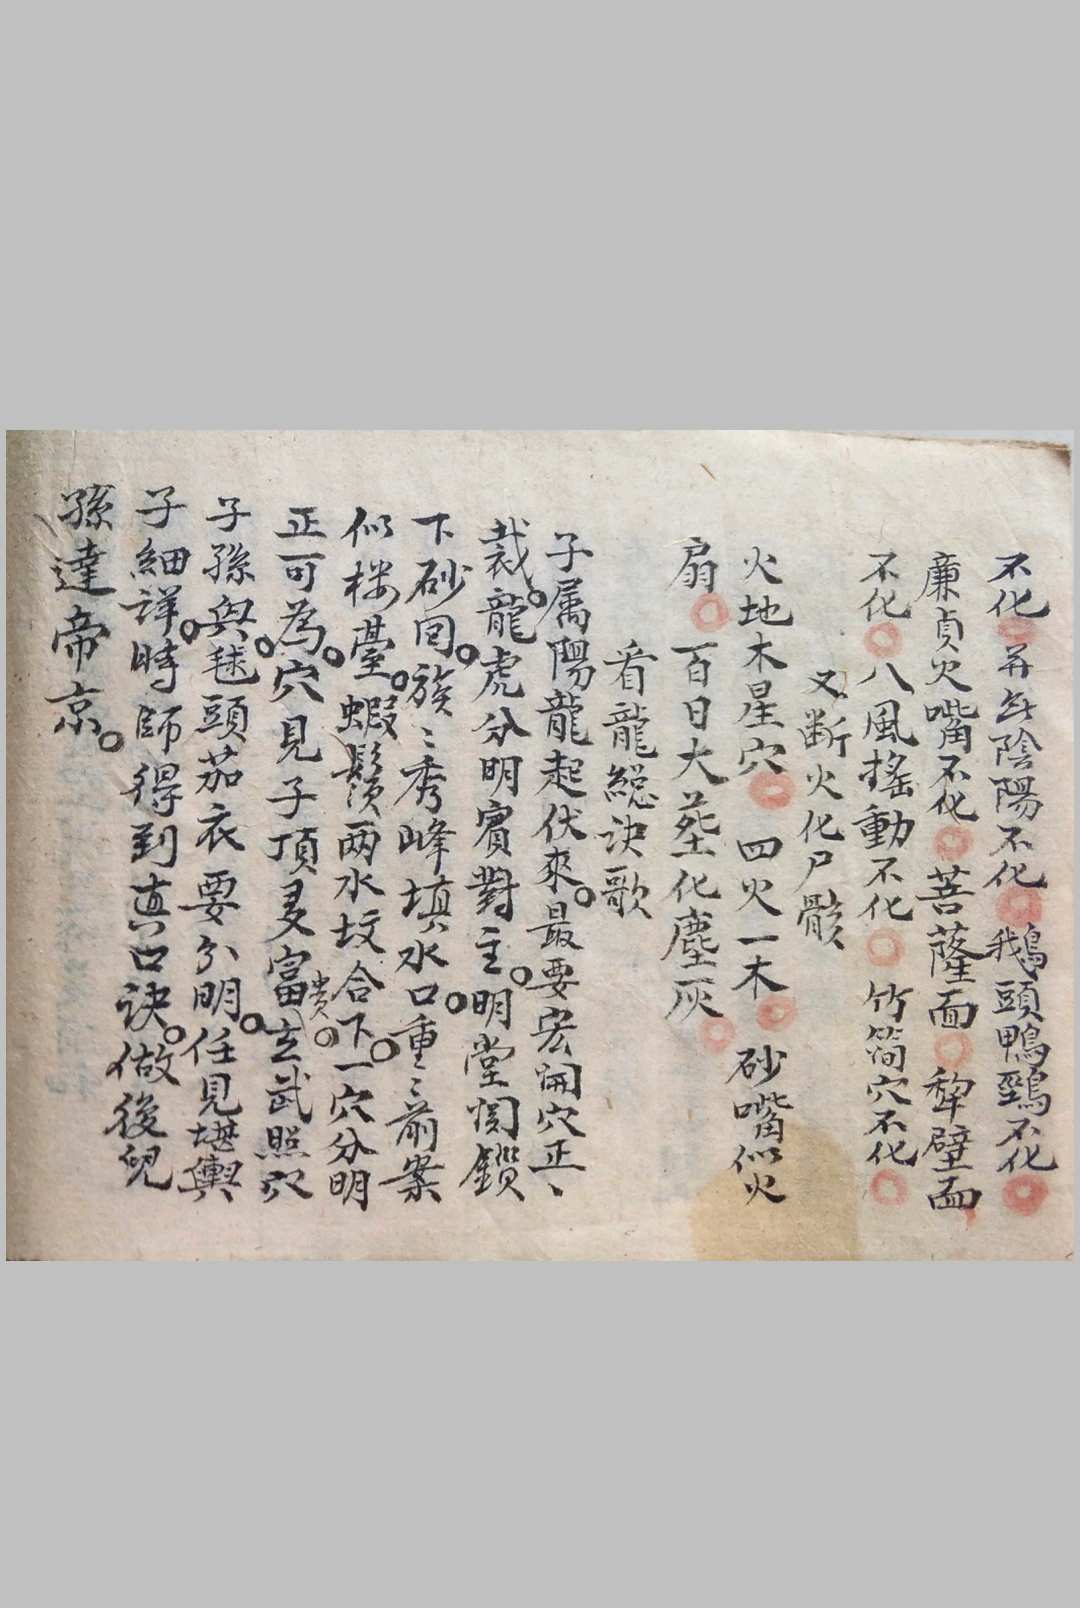 不化○并无陰陽不化○鵝頭鴨頸不化○
廉貞火嘴不化○菩薩面○犂壁面
不化○八風搖動不化○竹筒穴不化○
又断火化尸骸
火地木星穴○四火一木○砂嘴似火
扇○百日大葬化塵灰○
看龍総訣歌
子属陽龍起伏來。最要宏開穴正、
裁。龍虎分明賓對主。明堂関鎖
下砂回。族〻秀峰填水口。重〻前案
似楼臺。蝦鬚両水坟合下。一穴分明
正可為。穴見子頂多富貴。玄武照穴
子孫興。毬頭茄衣要分明。任見堪輿
子細詳。時師得到真口訣。做後兒
孫達帝京。